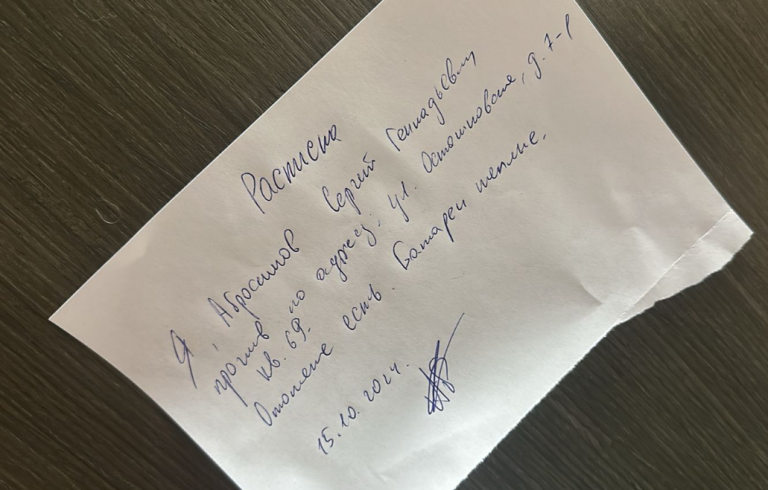 Расписка
Я, Абросимов Сергей Геннадьевич
прожив. по адресу: ул. Осташковская, д. 7-1
кв. 69.
Отопление есть. Батареи теплые.
15.10.2024.